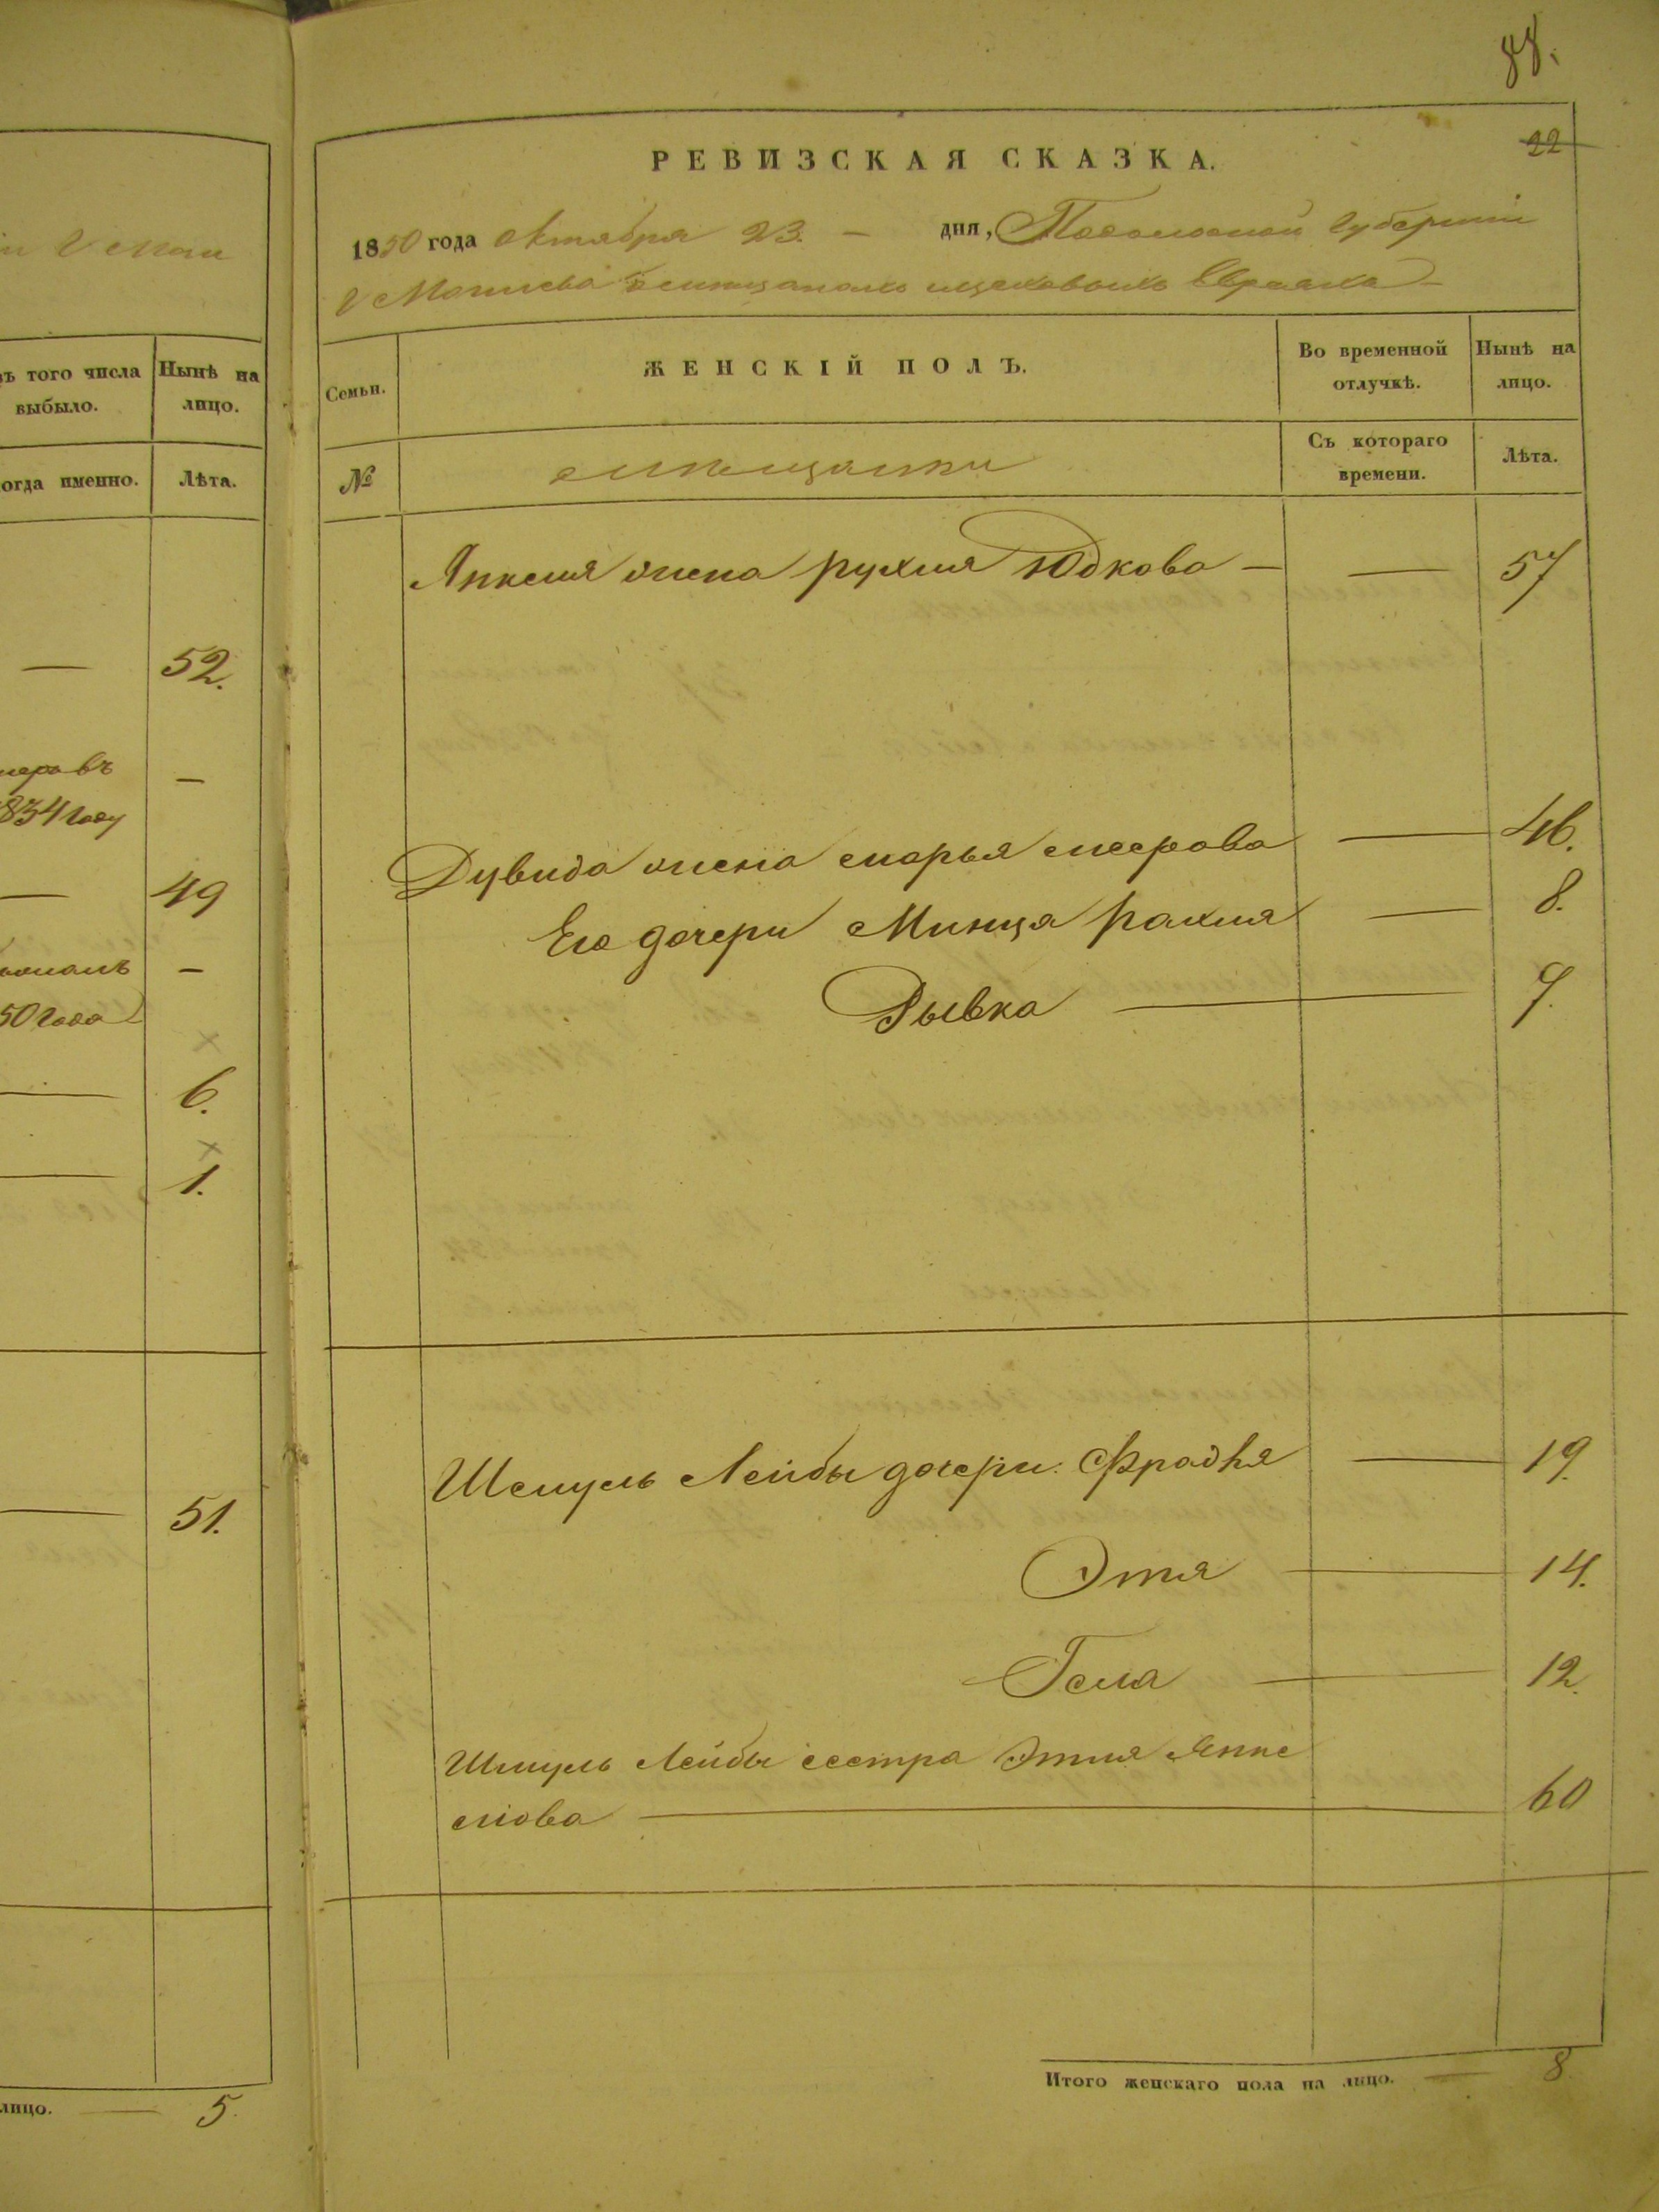 88.
22
РЕВИЗСКАЯ СКАЗКА.
1850 года октября 23. — дня, Подольской губернии
г Могилева мещанахъ Евреяхъ
ъ того числа выбыло.
Нынѣ на лицо.
огда именно.
Лѣта.
— 52.
меръ въ —
834 году
— 49
50 года —
— 6.
— 1.
— 51.
лицо. — 5
Семьи.
ЖЕНСКІЙ ПОЛЪ.
Во временной отлучкѣ.
Нынѣ на лицо.
№
мещанки
Съ котораго времени.
Лѣта.
Янкеля жена рухля Юдкова — — 57
Дувида жена марья меерова — 46.
Его дочери Минця рахля — 8.
Рывка — 7.
Шмуль Лейбы дочери: Фрадя — 19.
Этля — 14.
Геля — 12.
Шмуль Лейбы сестра Этля Янке
лова — 60
Итого женскаго пола на лицо. — 8